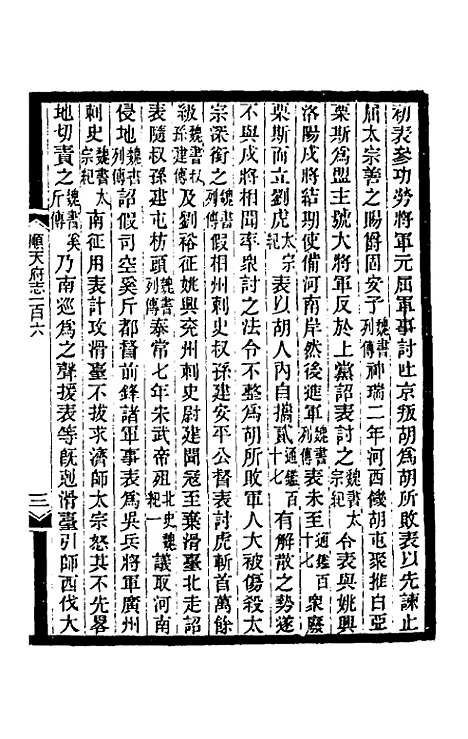 初表參功勞將軍元屈軍事討吐京叛胡爲胡所敗表以先諫止
屈太宗善之賜爵固安子魏書列傳神瑞二年河西饑胡屯聚推白亞
栗斯爲盟主號大將軍反於上黨詔表討之魏書太宗紀令表與姚興
洛陽戍將結期使備河南岸然後進軍魏書列傳表未至通鑑百十七眾廢
栗斯而立劉虎太宗紀表以胡人內自攜貳通鑑百十七有解散之勢遂
不與戍將相聞率眾討之法令不整爲胡所敗軍人大被傷殺太
宗深銜之魏書列傳假相州刺史叔孫建安平公督表討虎斬首萬餘
級魏書叔孫建傳及劉裕征姚興兗州刺史尉建聞寇至棄滑臺北走詔
表隨叔孫建屯枋頭魏書列傳泰常七年朱武帝殂北史魏紀一議取河南
侵地魏書列傳詔假司空奚斤都督前鋒諸軍事表爲吳兵將軍廣州
刺史魏書太宗紀南征用表計攻滑臺不拔求濟師太宗怒其不先畧
地切責之魏書奚斤傳乃南巡爲之聲援表等旣剋滑臺引師西伐大
順天府志一百六
三